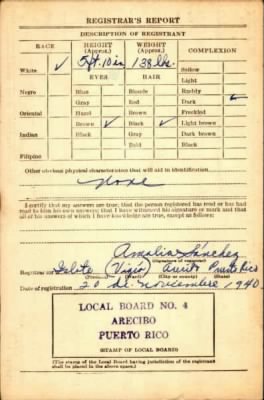 REGISTRAR'S REPORT
DESCRIPTION OF REGISTRANT
RACE HEIGHT (Approx.) WEIGHT (Approx.) COMPLEXION
White ✓ 5 ft. 10 in 138 lbs. Sallow
EYES HAIR Light
Negro Blue Blonde Ruddy
Gray Red Dark ✓
Oriental Hazel Brown Freckled
Brown ✓ Black ✓ Light brown
Indian Black Gray Dark brown
Bald Black
Filipino
Other obvious physical characteristics that will aid in identification
None
I certify that my answers are true; that the person registered has read or has had
read to him his own answers; that I have witnessed his signature or mark and that
all of his answers of which I have knowledge are true, except as follows:
Amalia Sánchez
(Signature of registrar)
Registrar for Arecibo Puerto Rico
(Precinct) (Ward) (City or county) (State)
Date of registration 20 de noviembre 1940
LOCAL BOARD NO. 4
ARECIBO
PUERTO RICO
(STAMP OF LOCAL BOARD)
(The stamp of the Local Board having jurisdiction of the registrant
shall be placed in the above space.)